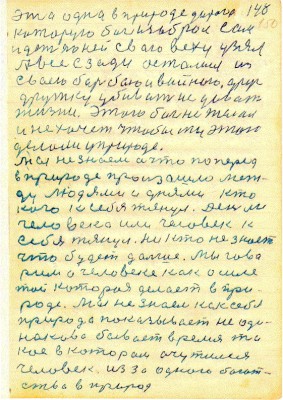 эта одна в природе дорога 146
которую бог избаброл сам
идет по ней своего веку узнал
А все сзади остались из
своею борьбою и войною, друг
дружку убивать не давать
жизни. Этого бог не желал
и не хочет чтобы мы этого
делали у природе.
Мы не знаем а что поперед
в природе произошло меж-
ду людями и днями кто
кого к себя тянул. День ли
человека или человек к
себя тянул. Ни кто не знает
что будет далше. Мы гова
рим о человеке как о силе
той которая делает в при-
роде. Мы не знаем как себя
природа показывает не оди-
накова бывает время та
кое в котором очутился
человек. из за одного богат-
ства в природ